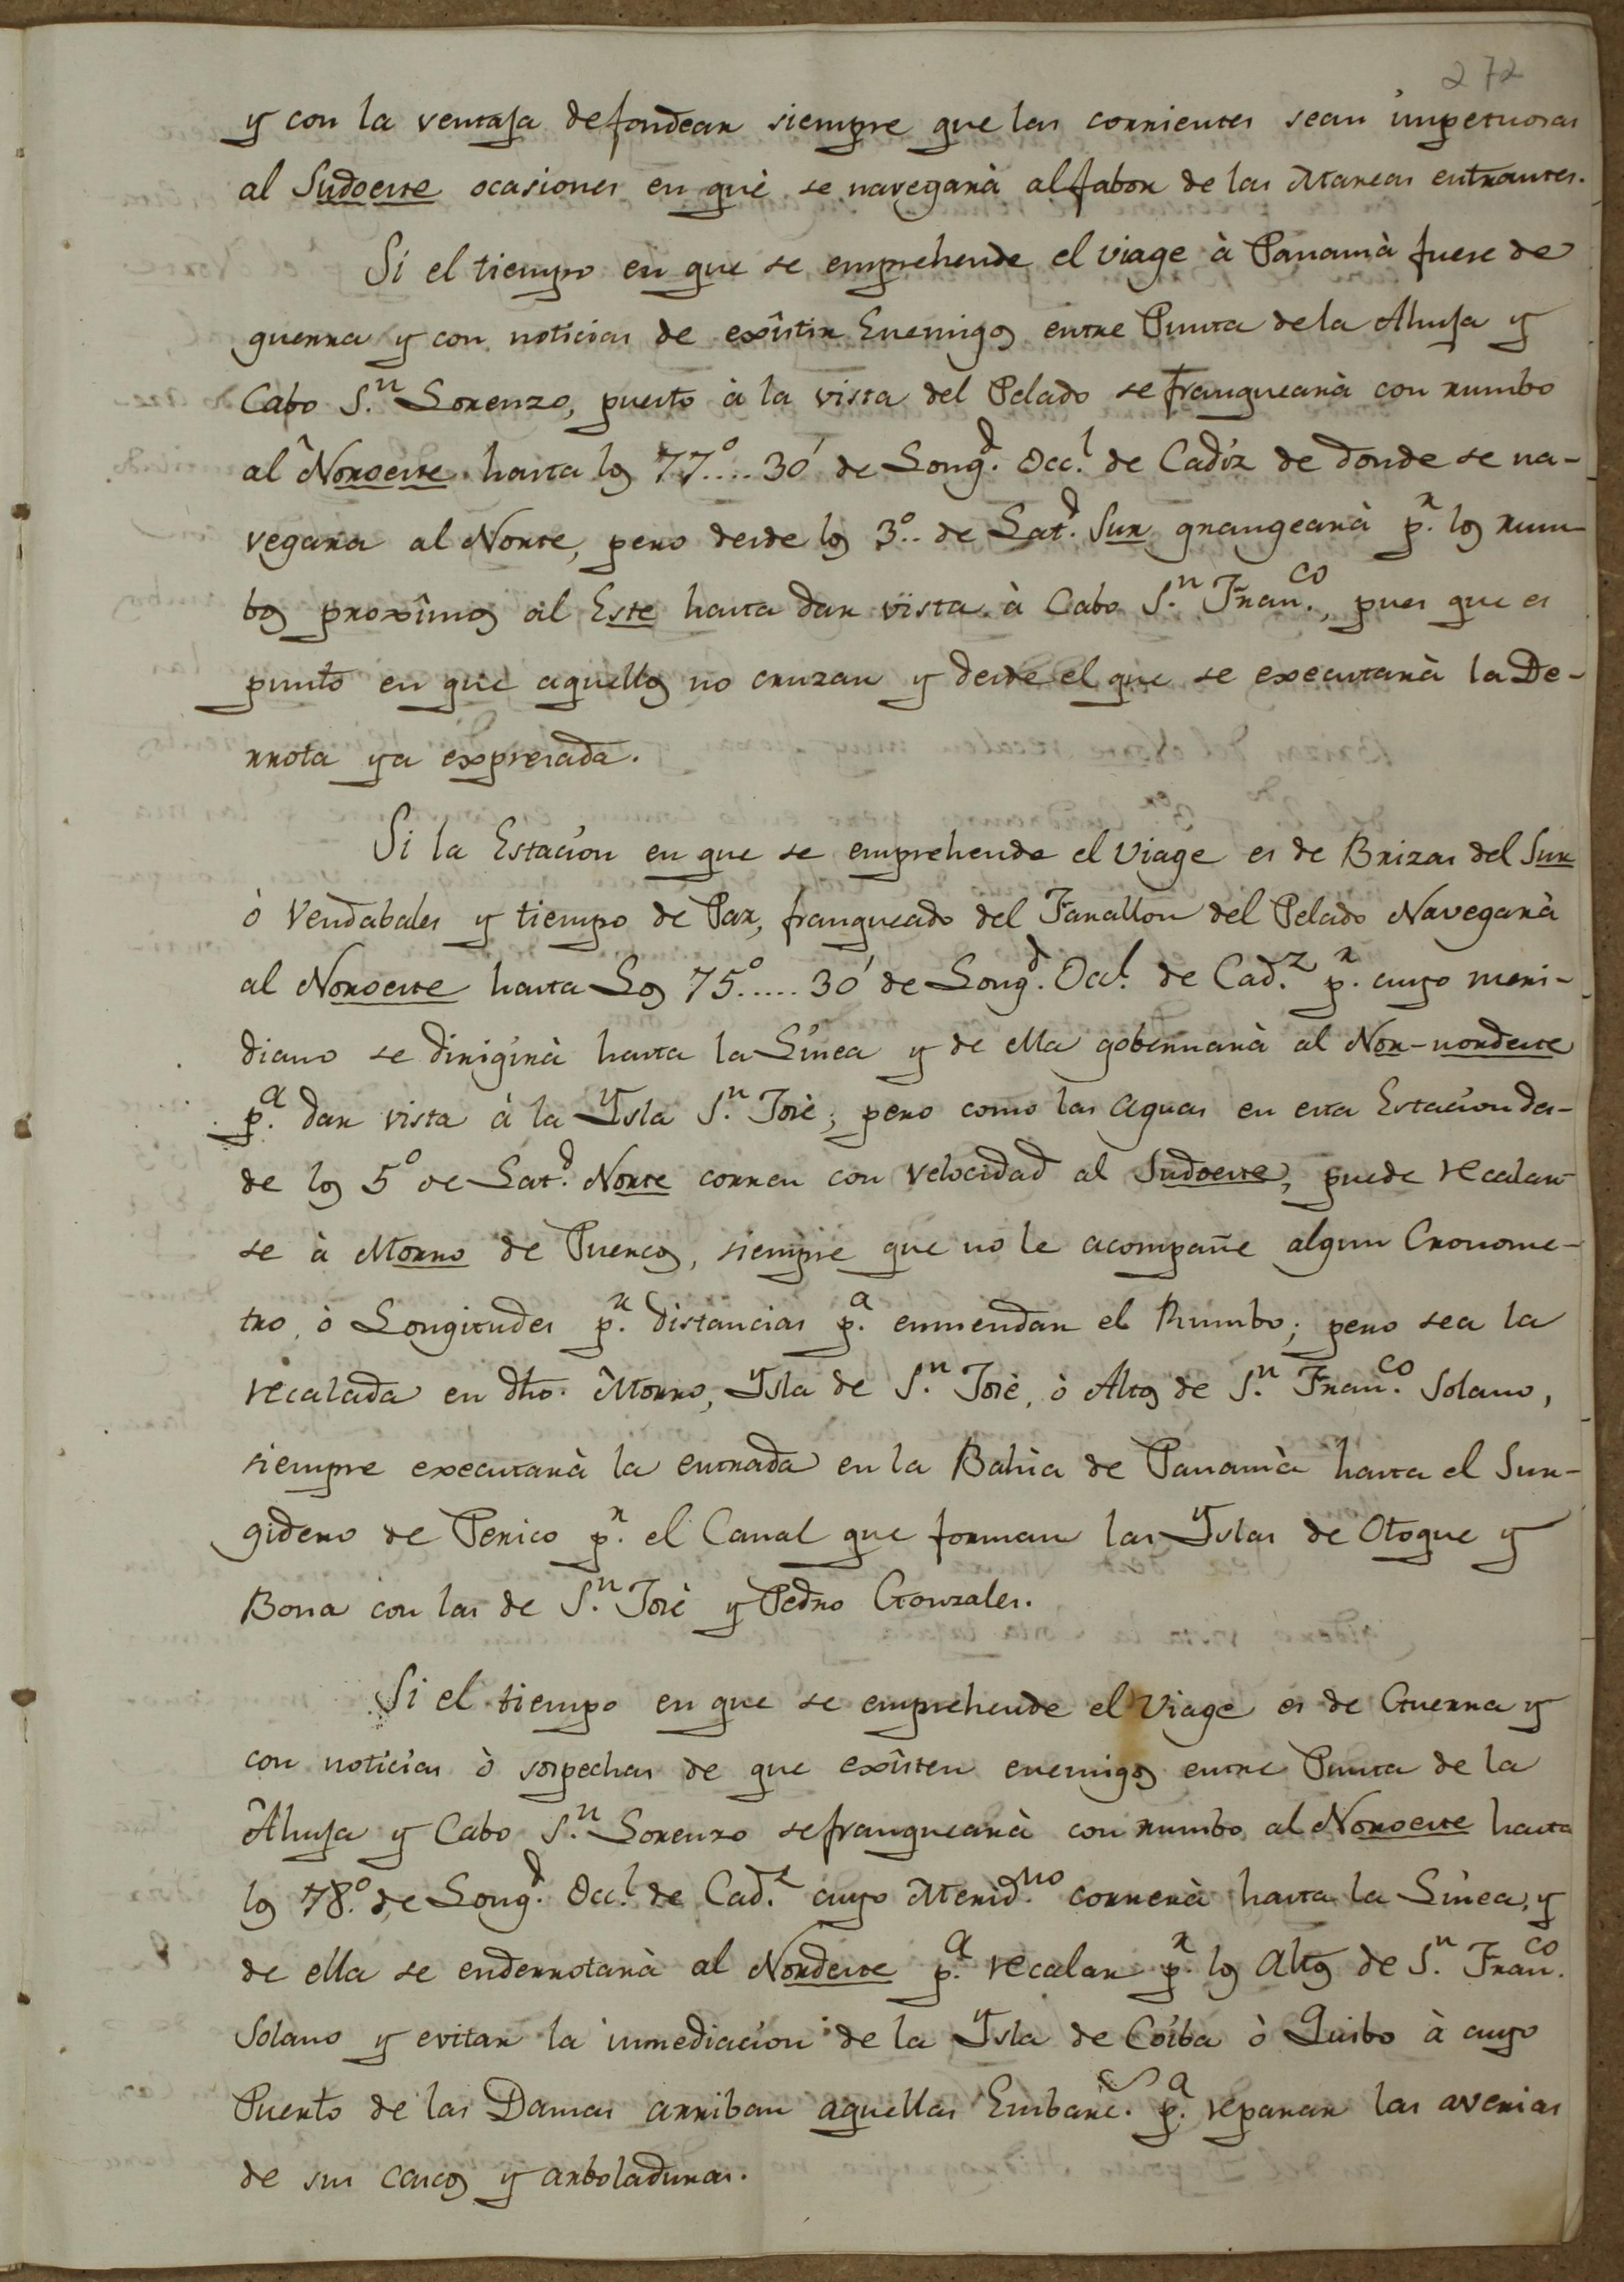 272
y con la ventaja de fondear siempre que las corrientes sean impetuosas
al Sudoeste ocasiones en què se navegarà al fabor de las Mareas entrantes.
Si el tiempo en que se emprehende el viage à Panamà fuere de
guerra y con noticias de exîstir Enemigos entre Punta de la Ahuja y
Cabo S.n Lorenzo, puesto à la vista del Pelado se franqueará con rumbo
al Noroeste hasta los 77.°....30' de Long.d Occ.l de Cadiz de donde se na-
vegara al Norte, pero desde los 3.°. de Lat.d Sur grangearà p.r los rum-
bos proxîmos al Este hasta dar vista à Cabo S.n Fran.co, pues que es
punto en que aquellos no cruzan y desde el que se executarà la De-
rrota ya expresada.
Si la Estacion en que se emprehende el Viage es de Brizas del Sur
ò Vendabales y tiempo de Paz, franqueado del Farallon del Pelado Navegarà
al Noroeste hasta Los 75.°.....30' de Long.d Occ.l de Cad.z p.r cuyo meri-
diano se dirigirà hasta la Linea y de ella gobernarà al Nor-nordeste
p.a dar vista à la Ysla S.n Josè; pero como las aguas en esta Estacion da-
de los 5° de Lat.d Norte corren con velocidad al Sudoeste, puede recalar-
se à Morro de Puercos, siempre que no le acompañe algun Cronome-
tro, ò Longitudes p.r distancias p.a enmendar el Rumbo; pero sea la
recalada en dho. Morro, Ysla de S.n Josè, ò Altos de S.n Fran.co Solano,
siempre executarà la entrada en la Bahia de Panamà hasta el Sur-
gidero de Perico p.r el Canal que forman las Yslas de Otoque y
Bona con las de S.n Josè y Pedro Gonzales.
Si el tiempo en que se emprehende el Viage es de Guerra y
con noticias ò sospechas de que exîsten enemigos entre Punta de la
Ahuja y Cabo S.n Lorenzo se franquearà con rumbo al Noroeste hasta
los 78.° de Long.d Occ.l de Cad.z cuyo Merid.no correrà hasta la Linea, y
de ella se enderrotarà al Nordeste p.a recalar p.r los altos de S.n Fran.co
Solano y evitar la inmediacion de la Ysla de Coiba ò Quibo à cuyo
Puerto de las Damas arriban aquellas Embarc.s p.a reparar las averias
de sus cascos y arboladuras.